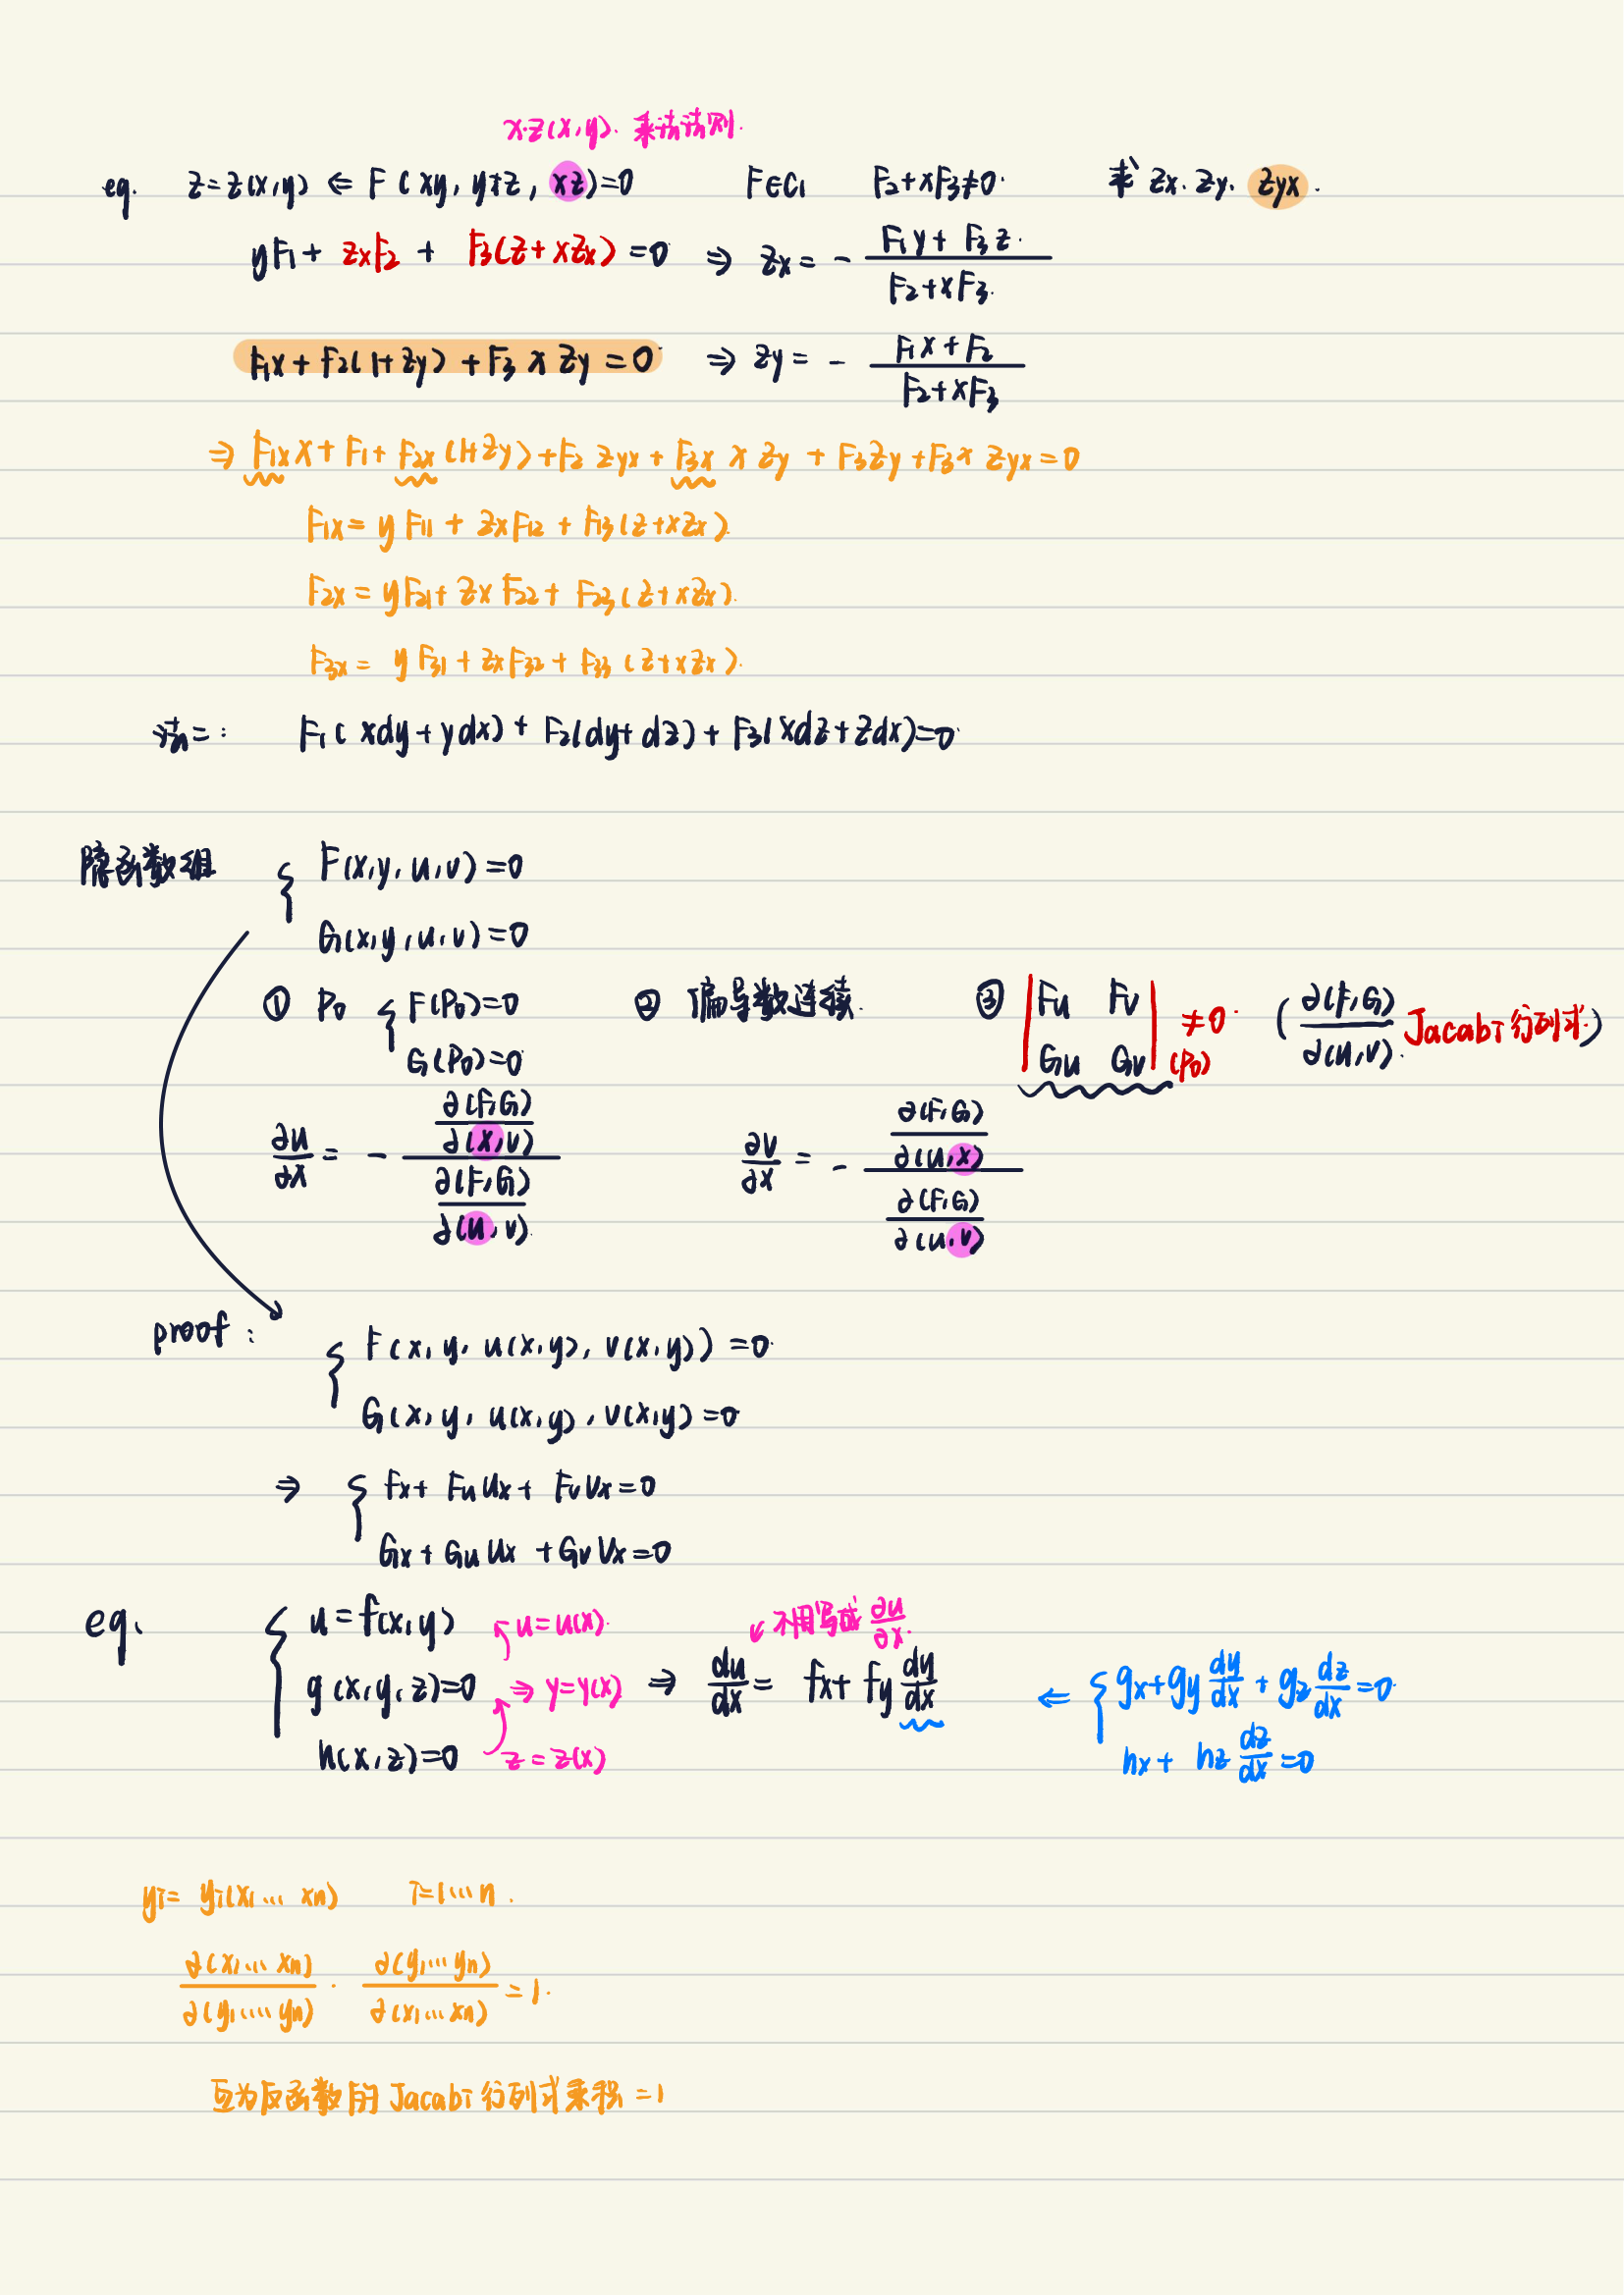 x·z(x,y). 乘法法则.
eg. z=z(x,y) ⇐ F(xy, y+z, xz)=0 F∈C₁ F₂+xF₃≠0. 求 zx. zy. zyx.
yF₁+ zxF₂ + F₃(z+xzx)=0 ⇒ zx = - (F₁y + F₃z)/(F₂+xF₃)
F₁x + F₂(1+zy) + F₃ x zy = 0 ⇒ zy = - (F₁x + F₂)/(F₂+xF₃)
⇒ F₁x x + F₁ + F₂x (1+zy) + F₂ zyx + F₃x x zy + F₃zy + F₃x zyx = 0
F₁x = yF₁₁ + zxF₁₂ + F₁₃(z+xzx)
F₂x = yF₂₁ + zxF₂₂ + F₂₃(z+xzx).
F₃x = yF₃₁ + zxF₃₂ + F₃₃(z+xzx).
法二: F₁(xdy+ydx) + F₂(dy+dz) + F₃(xdz+zdx)=0
隐函数组 { F(x,y,u,v)=0
G(x,y,u,v)=0
① P₀ { F(P₀)=0 G(P₀)=0 ② 偏导数连续. ③ |Fu Fv Gu Gv| (P₀) ≠0. (∂(F,G)/∂(u,v). Jacabi行列式)
∂u/∂x = - (∂(F,G)/∂(x,v))/(∂(F,G)/∂(u,v)) ∂v/∂x = - (∂(F,G)/∂(u,x))/(∂(F,G)/∂(u,v))
proof: { F(x,y,u(x,y),v(x,y))=0
G(x,y,u(x,y),v(x,y)=0
⇒ { Fx+ FuUx+ FvVx=0
Gx+GuUx+GvVx=0
eg. { u=f(x,y) u=u(x). 不用写成 ∂u/∂x.
g(x,y,z)=0 ⇒ y=y(x) ⇒ du/dx = fx+fy dy/dx ⇐ { gx+gy dy/dx + gz dz/dx=0
h(x,z)=0 z=z(x) hx+ hz dz/dx=0
yi= yi(x₁… xn) i=1…n.
∂(x₁… xn)/∂(y₁… yn) · ∂(y₁… yn)/∂(x₁… xn) = 1.
互为反函数的Jacabi行列式乘积=1